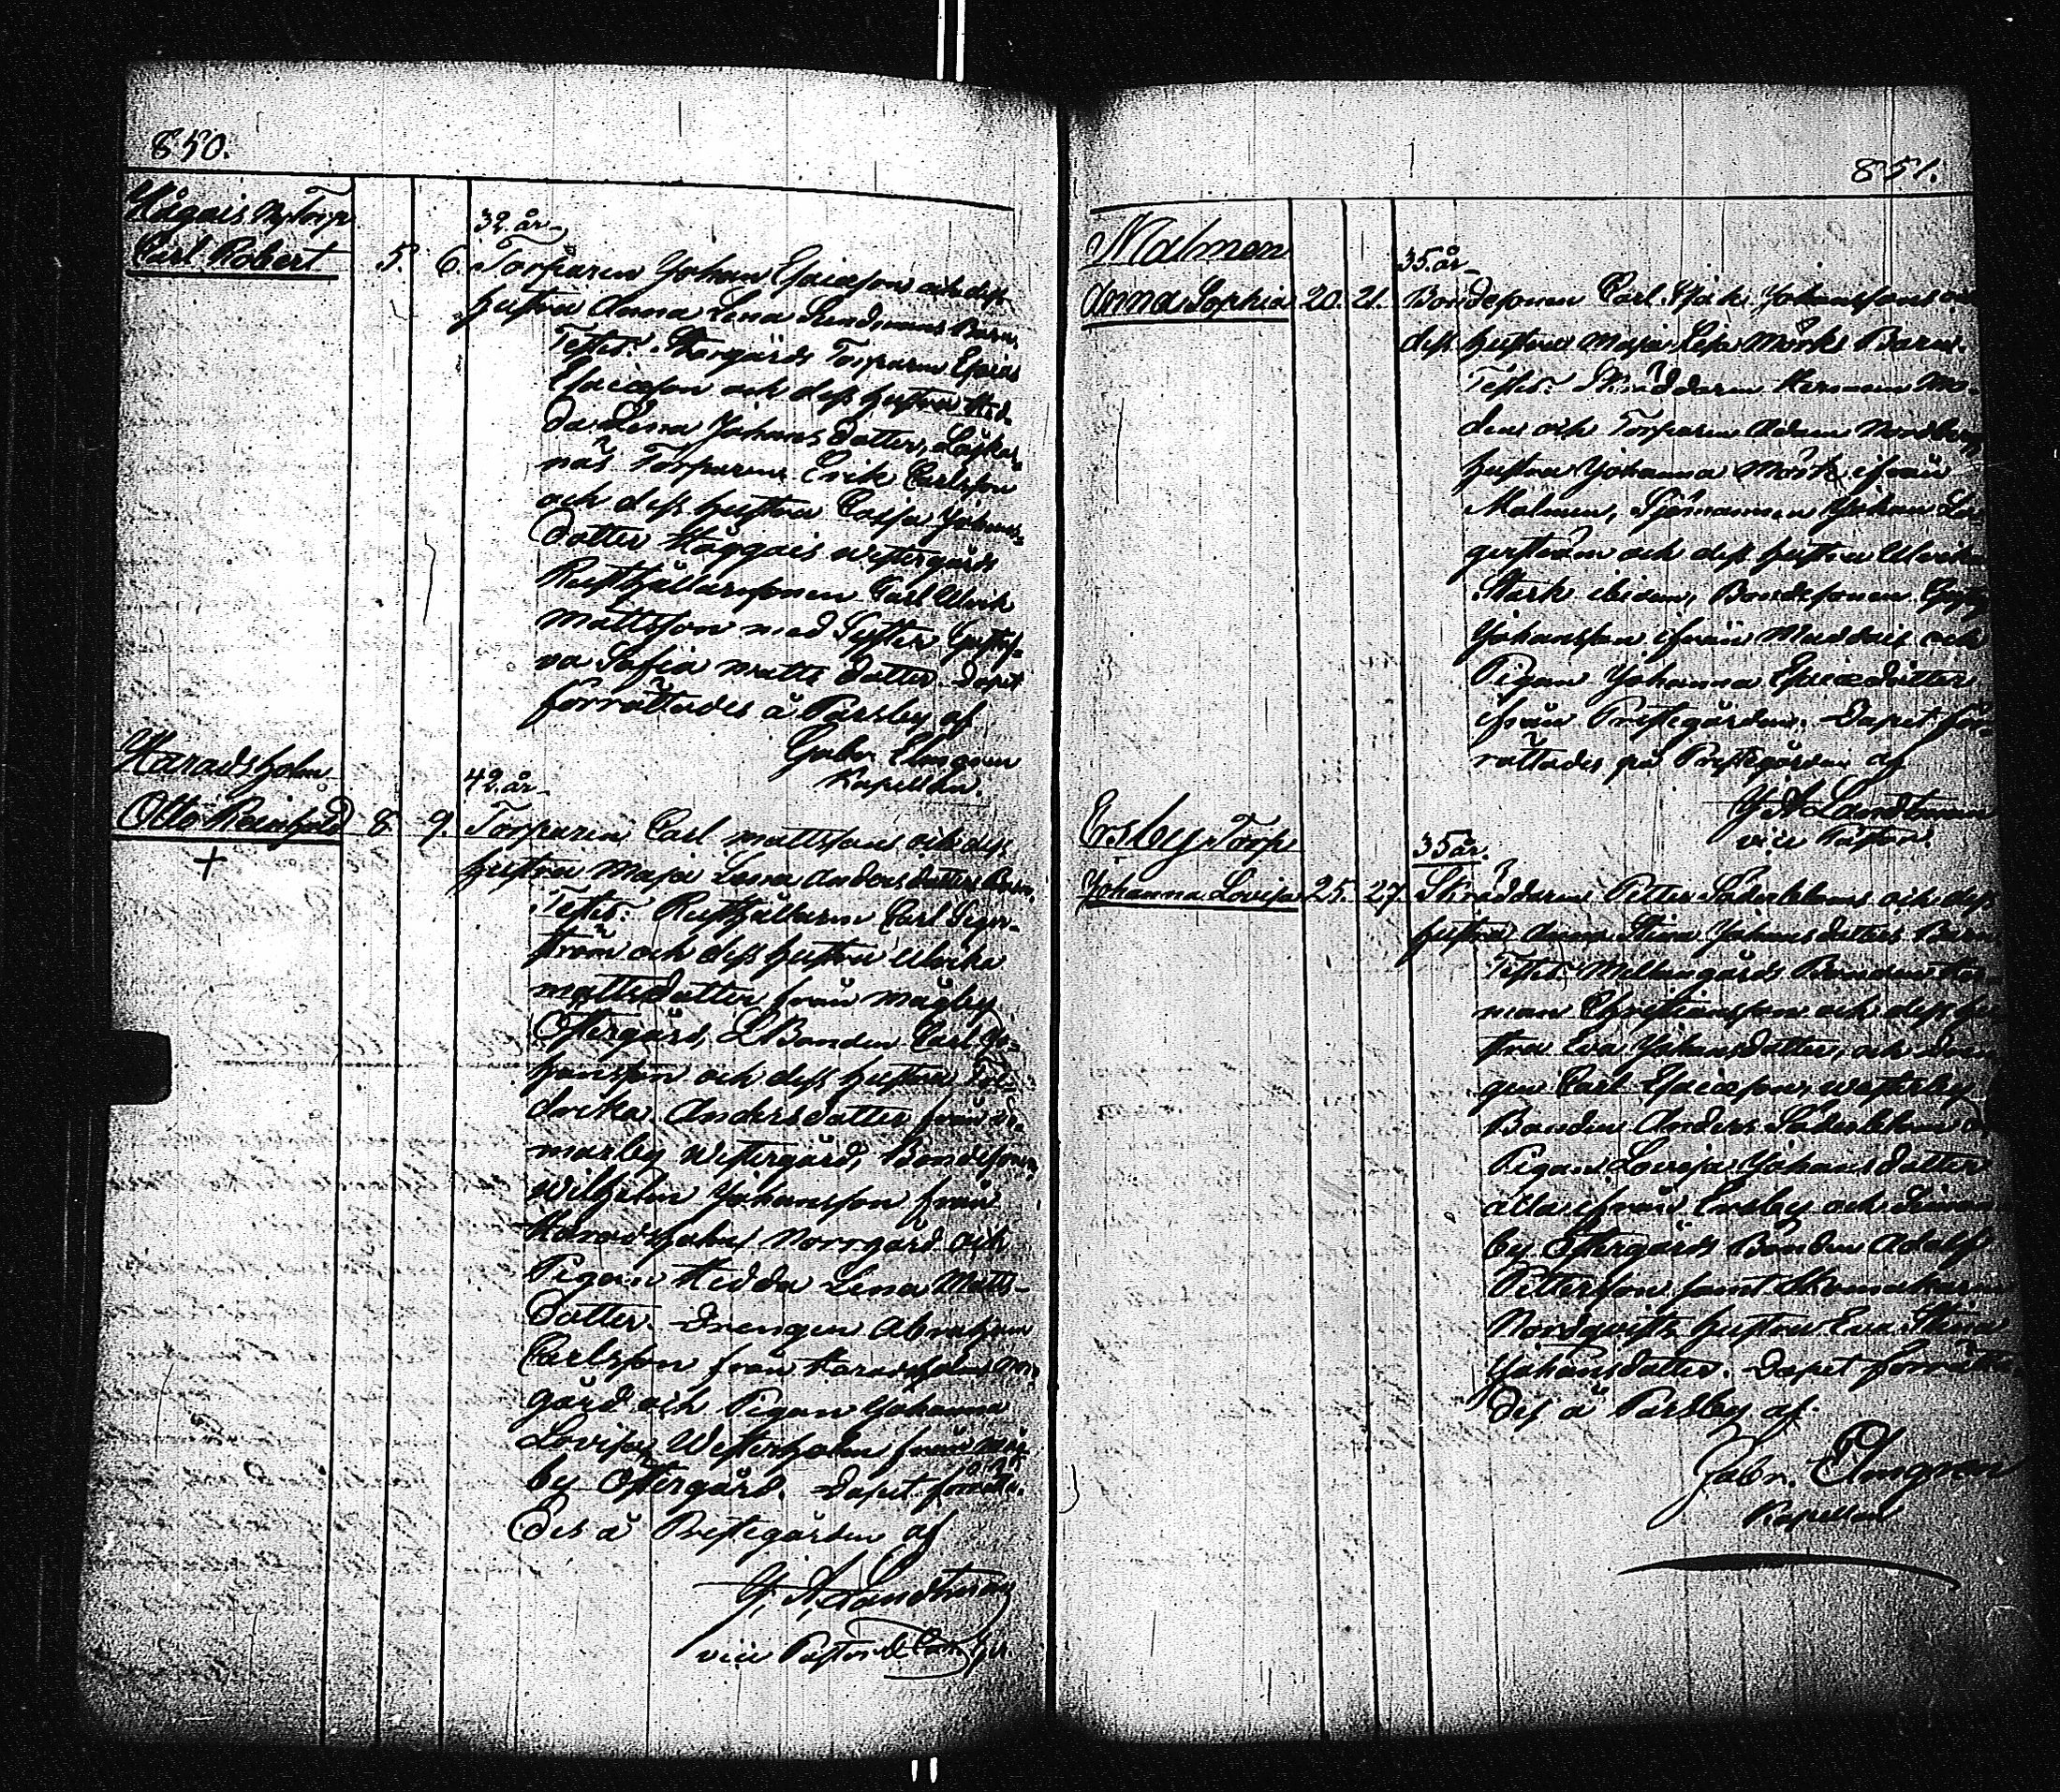 850.
Håggais Ny Torp
Carl Robert 5. 6.
32. år
Torparen Johan Esaiæson och dess
hustru Anna Lena Lundmans Barn.
Testes: Storgårds Torparen Esaias
Esaiæson och dess hustru Hed-
da Lena Johansdotter,
näs Torparen Erik Carlsson
och dess hustru Caisa Johans-
dotter Häggais westergårds
Rusthållarsonen Carl Ulrik
Mattsson med Syster Gusta-
va Sofia Mattsdotter. Dopet
förrättades å Parsby af
Gabr. Elmgren
Kapellan.
Haradsholm
Otto Reinhold 8. 9.
+
42. år
Torparen Carl Mattssons och dess
hustru Maja Lena Andersdotters Barn.
Testes: Rusthållaren Carl
ström och dess hustru Ulrika
Mattsdotter från Mågby
Östergård, LBonden Carl Jo-
hansson och dess hustru
drika Andersdotter från
marby Westergård, Bondesonen
Wilhelm Johansson från
Haradsholms Norrgård och
Pigan Hedda Lena Matts-
dotter. Drengen Abraham
Carlsson från Haradsholms
gård och Pigan Johanna
Lovisa Westerholm från
by Östergård. Dopet förrätta-
des å Prestegården af
J. A. Landtman
vice Pastor
851.
Malmen
Anna Sophia 20. 21.
35. år
Bondesonen Carl Isak Johanssons och
dess hustru Maja Lisa Mörks Barn.
Testes: Skräddaren Herman Mo-
den och Torparen Adam Nordbergs
hustru Johanna Mörk ifrån
Malmen, Sjömannen Johan La-
gerström och dess hustru Ulrika
Stark ibidem, Bondesonen
Johansson ifrån Muddais och
Pigan Johanna Esaiædotter
ifrån Prestegården. Dopet för-
rättades på Prestegården af
J A Landtman
vice Pastor.
Ersby Torp
Johanna Lovisa 25. 27.
35 år.
Skräddaren Petter Söderbloms och dess
hustru Anna Stina Johansdotters Barn
Testes: Mellangårds Bonden Her-
man Christiansson och dess hu-
stru Eva Johansdotter, och dren-
gen Carl Esaiæson, westerby
Bonden Anders Söderblom
Pigan Lovisa Johansdotter
alla ifrån Ersby och
by Östergårds Bonden Adolf
Pettersson samt Skomakaren
Nordqvists hustru Eva Stina
Johansdotter. Dopet förrätta-
des å Parsby af
Gabr. Elmgren
Kapellan